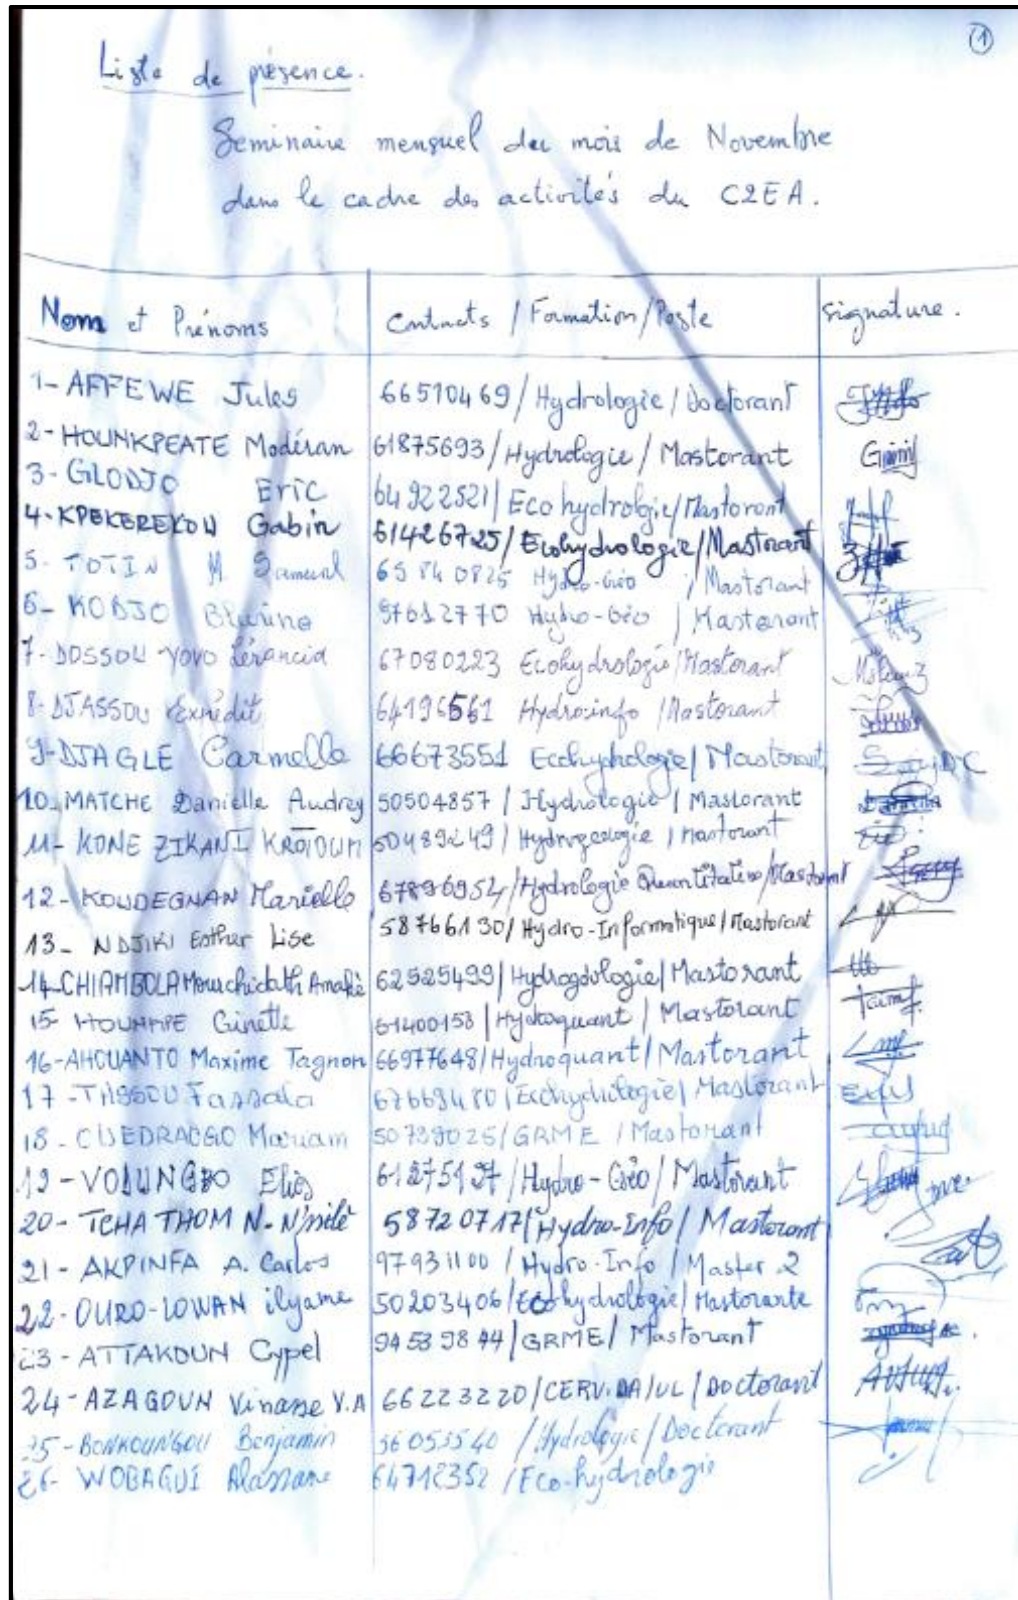 ①
Liste de présence.
Seminaire mensuel du mois de Novembre
dans le cadre des activités du C2EA.
Nom et Prénoms Contacts / Formation / Poste Signature.
1- AFFEWE Jules 66510469 / Hydrologie / Doctorant
2- HOUNKPEATE Modéran 61875693 / Hydrologie / Mastorant
3- GLODJO Eric 64922521 / Eco hydrologie / Mastorant
4- KPEKEREKOU Gabin 61426725 / Ecohydrologie / Mastorant
5- TOTIN M Samuel 65840825 Hydro-Géo / Mastorant
6- KODJO 97612770 Hydro-Géo / Mastorant
7- DOSSOU-YOVO 67080223 Ecohydrologie / Mastorant
8- DJASSOU Expédit 64196561 Hydro-info / Mastorant
9- DJAGLE Carmelle 66673551 Ecohydrologie / Mastorant
10- MATCHE Danielle Audrey 50504857 / Hydrologie / Mastorant
11- KONE ZIKANI KROTOUM 50489249 / Hydrogeologie / Mastorant
12- KOUDEGNAN Marielle 67896954 / Hydrologie Quantitative / Mastorant
13- NDJIKI Esther Lise 58766130 / Hydro-Informatique / Mastorant
14- CHIAMBOLA Mourchidath 62525499 / Hydrogéologie / Mastorant
15- Ginette 61400158 / Hydroquant / Mastorant
16- AHOUANTO Maxime Tagnon 66977648 / Hydroquant / Mastorant
17- Fassala / Ecohydrologie / Mastorant
18- OUEDRAOGO Mariam 50739025 / GRME / Mastorant
19- VODUNGBO Eliès 61275127 / Hydro-Géo / Mastorant
20- TCHA THOM N- N'nilè 58720717 / Hydro-Info / Mastorant
21- AKPINFA A. Carlos 97931100 / Hydro-Info / Master 2
22- OURO-LOWAN ilyame 50203406 / Ecohydrologie / Mastorante
23- ATTAKOUN Cypel 94539844 / GRME / Mastorant
24- AZAGOUN Vinasse V.A 66223220 / CERV.DA/UL / Doctorant
25- BONKOUNGOU Benjamin 56055540 / Hydrologie / Doctorant
26- WOBAGUI Alassane 64712352 / Eco-hydrologie